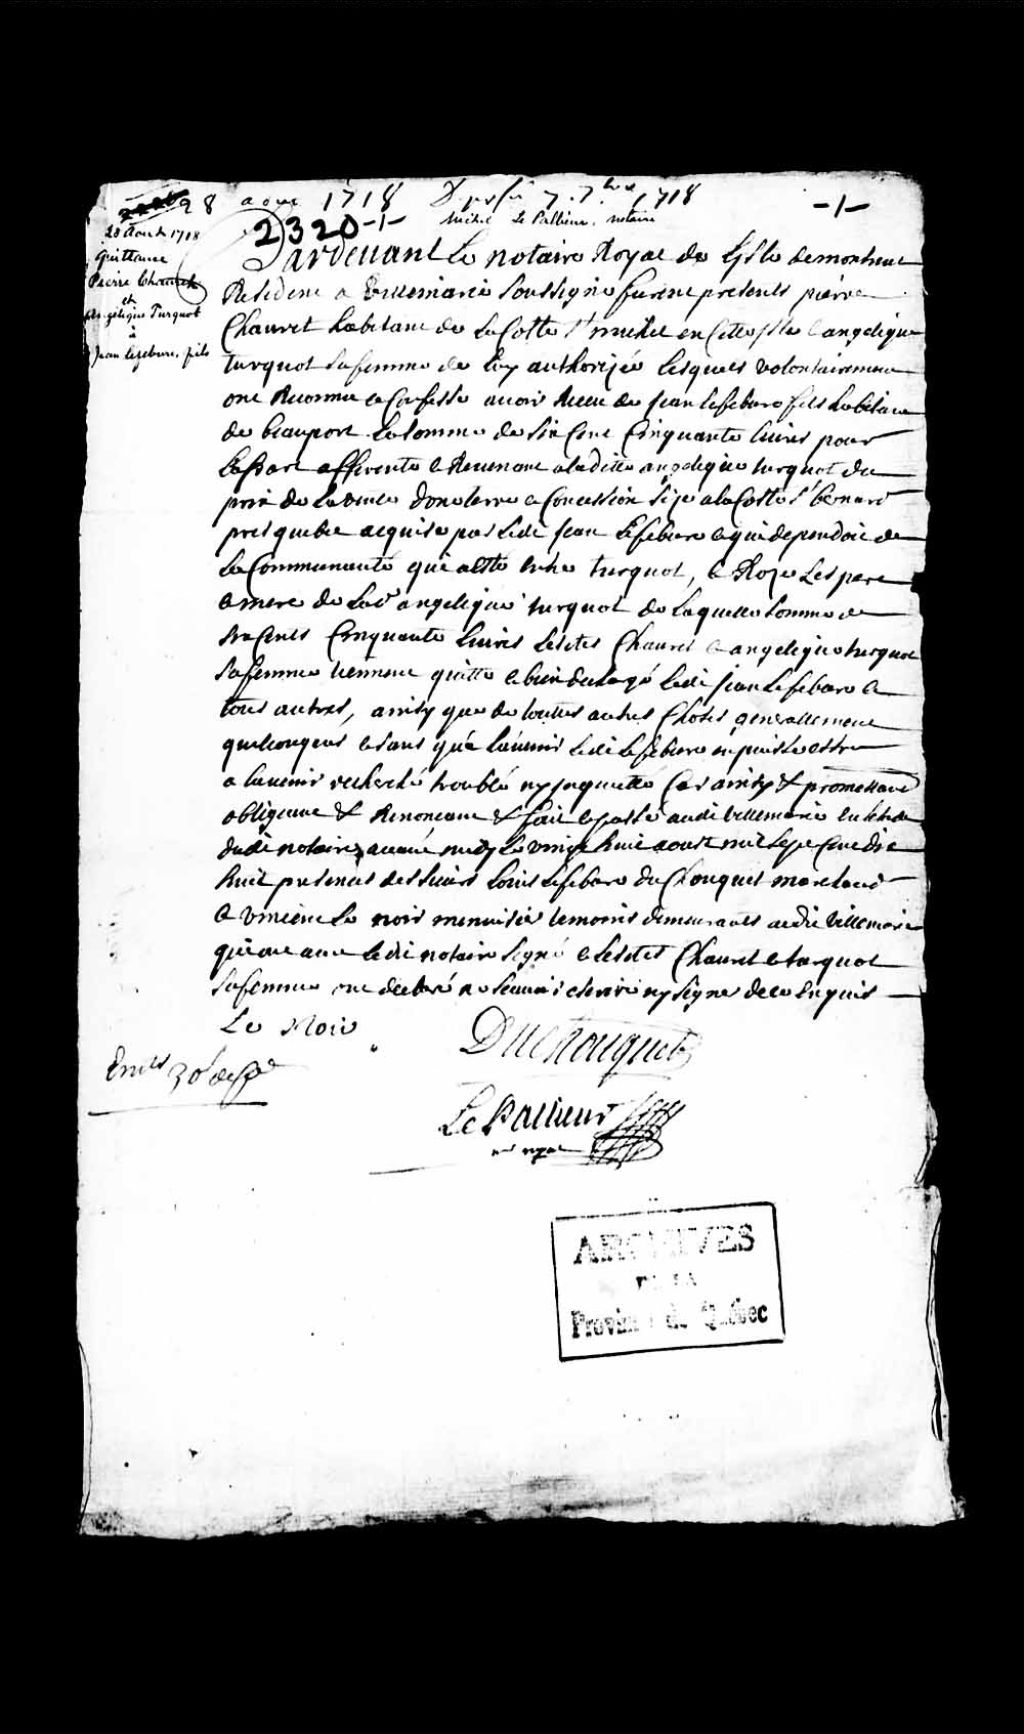 28 aout 1718 7 7bre 1718 -1-
2320-1- Michel Le Pallieur, notaire
28 Août 1718
Quittance
Pierre Chauvet
et
Angélique Turquot
à
Jean Lefebvre, fils
Pardevant Le notaire Royal de L'Isle de montreal
Residant a Villemarie Soussigné furent presents pierre
Chauvet habitant de La Coste St michel en Cette Isle & angelique
turquot Sa femme de luy authorizée Lesquels volontairement
ont Reconnu & Confessé avoir Receu de Jean Lefebvre fils habitant
de beauport La Somme de Six Cent Cinquante Livres pour
La part afferente & Revenant a Laditte angelique turquot du
prix de La vente d'une terre & Concession Size a La Coste St bernard
pres quebec acquise par Ledit Jean Lefebvre & qui dependoit de
La Communauté qui a esté entre turquot, & Les pere
& mere de Lad. angelique turquot de Laquelle Somme de
Six Cents Cinquante Livres Lesdits Chauvet & angelique turquot
Sa femme tiennent quitte & bien dechargé Ledit Jean Lefebvre &
tous autres, ainsy que de touttes autres Choses generallement
quelconques & sans qu'a L'avenir Ledit Lefebvre en puisse estre
a L'avenir recherché troublé ny inquietté Car ainsy & promettant
obligeant & Renonçant & fait & passé audit Villemarie En Letude
dudit notaire, avant midy Le vingt huit aoust mil Sept Cent dix
huit presences des Sieurs Louis Lefebvre du Chouquet marchand
& vincent Le noir menuisier temoins demeurants audit Villemarie
qui ont avec Ledit notaire Signé & Lesdits Chauvet & turquot
Sa femme ont declaré ne Scavoir escrire ny Signer de ce Enquis
Le Noir
Duchouquet
LePallieur
nore royal
ARCHIVES
DE LA
Province de Québec